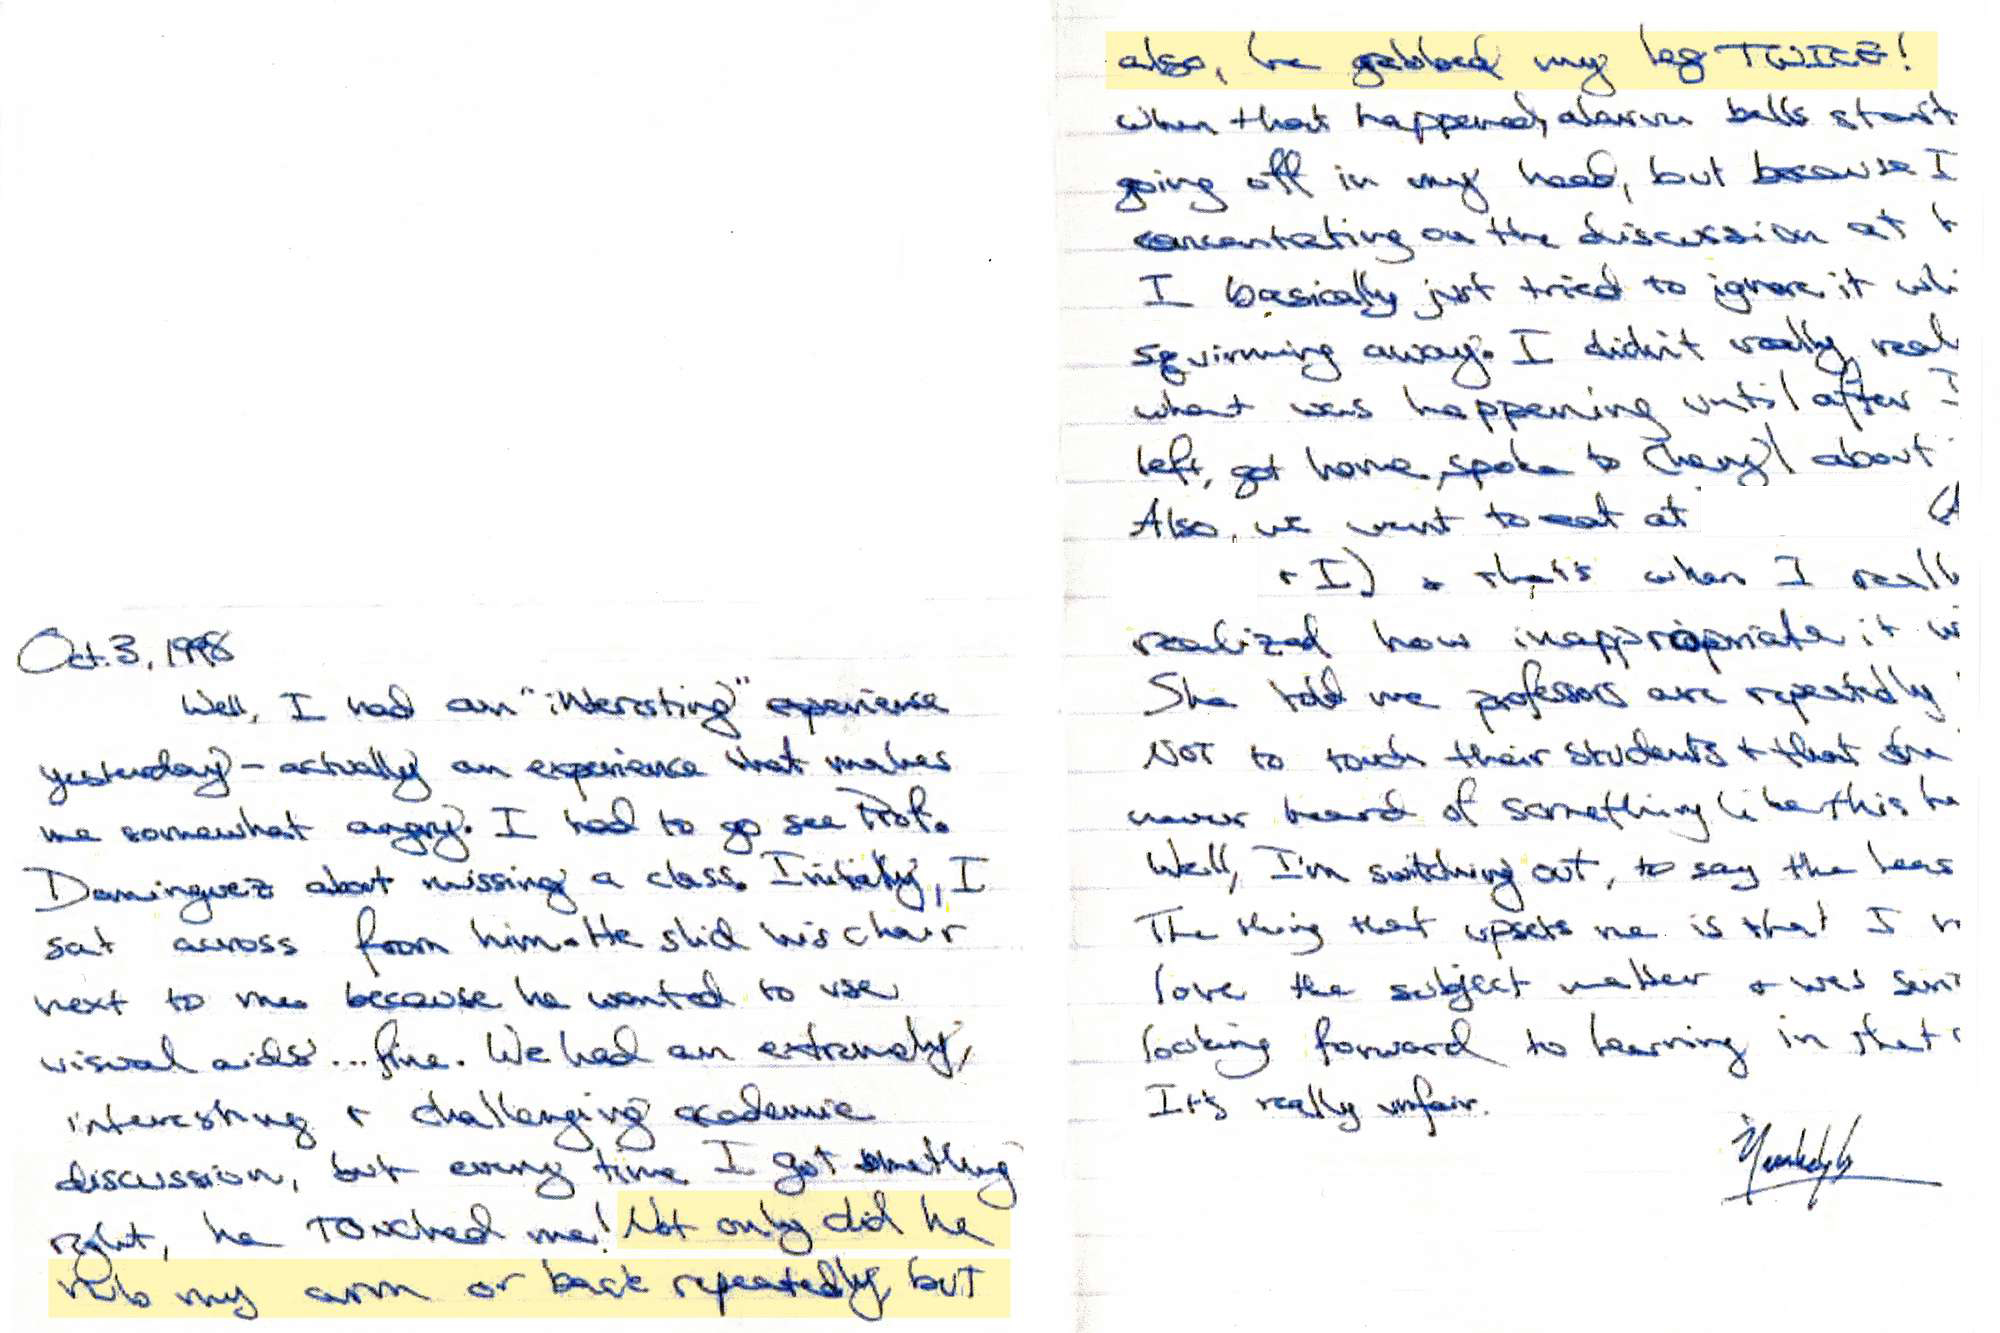 Oct. 3, 1998
Well, I had an "interesting" experience
yesterday - actually an experience that makes
me somewhat angry. I had to go see Prof.
Dominguez about missing a class. Initially, I
sat across from him. He slid his chair
next to me because he wanted to use
visual aids ... fine. We had an extremely,
interesting + challenging academic
discussion, but every time I got something
right, he TOUCHED me! Not only did he
rub my arm or back repeatedly, but
also, he grabbed my leg TWICE!
when that happened, alarm bells start
going off in my head, but because I
concentrating on the discussion at h
I basically just tried to ignore it whi
squirming away. I didn't really real
what was happening until after I
left, got home, spoke to Cheryl about
Also, we went to eat at
+ I) + that's when I reall
realized how inappropriate it w
She told me professors are repeatedly
NOT to touch their students + that she
never heard of something like this be
Well, I'm switching out, to say the leas
The thing that upsets me is that I r
love the subject matter + was
looking forward to learning in that
It's really unfair.